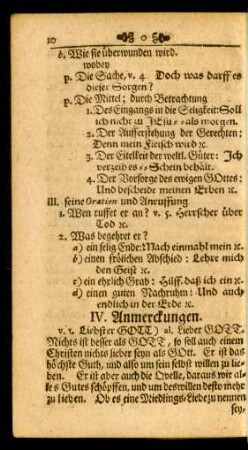 10
b. Wie sie überwunden wird.
wobey
p. Die Sache, v. 4. Doch was darff es
dieser Sorgen?
p. Die Mittel; durch Betrachtung
1. Des Eingangs in die Seligkeit: Soll
ich nicht zu JEsu-- als morgen.
2. Der Aufferstehung der Gerechten:
Denn mein Fleisch wird ꝛc.
3. Der Eitelkeit der weltl. Güter: Ich
verzeih es -- Schein behält.
4. Der Vorsorge des ewigen GOttes:
Und bescheide meinen Erben ꝛc.
III. seine Oration und Anruffung
1. Wen ruffet er an? v. 5. Herrscher über
Tod ꝛc.
2. Was begehret er?
a) ein selig Ende: Mach einmahl mein ꝛc.
b) einen frölichen Abschied: Lehre mich
den Geist ꝛc.
c) ein ehrlich Grab: Hülff, daß ich ein ꝛc.
d) einen guten Nachruhm: Und auch
endlich in der Erde ꝛc.
IV. Anmerckungen.
v. 1. Liebster GOTT) al. Lieber GOTT.
Nichts ist besser als GOTT, so soll auch einem
Christen nichts lieber seyn als GOtt. Er ist das
höchste Guth, und also um sein selbst willen zu lie-
ben. Er ist aber auch die Qvelle, daraus wir al-
les Gutes schöpffen, und um deswillen desto mehr
zu lieben. Ob es eine Miedlings-Liebe zu nennen
sey,